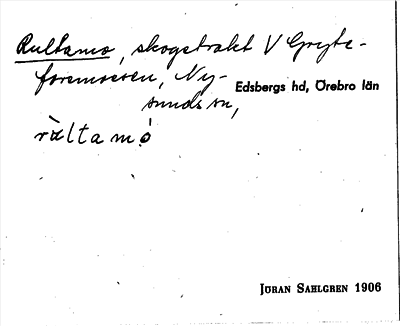 Rultamo, skogstrakt V Gryte-
forsmossen, Ny-
sunds sn,
Edsbergs hd, Örebro län
rùltamò
JÖRAN SAHLGREN 1906